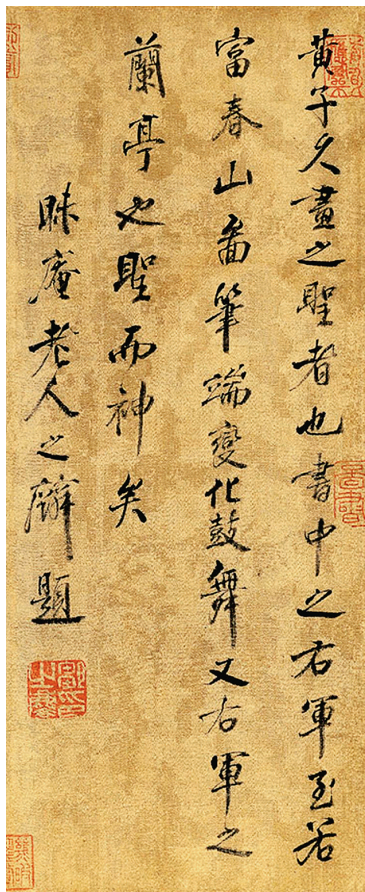 黃子久畫之聖者也書中之右軍至若
富春山圖筆端變化鼓舞又右軍之
蘭亭也聖而神矣
昧庵老人之麟題
鄒之麟印